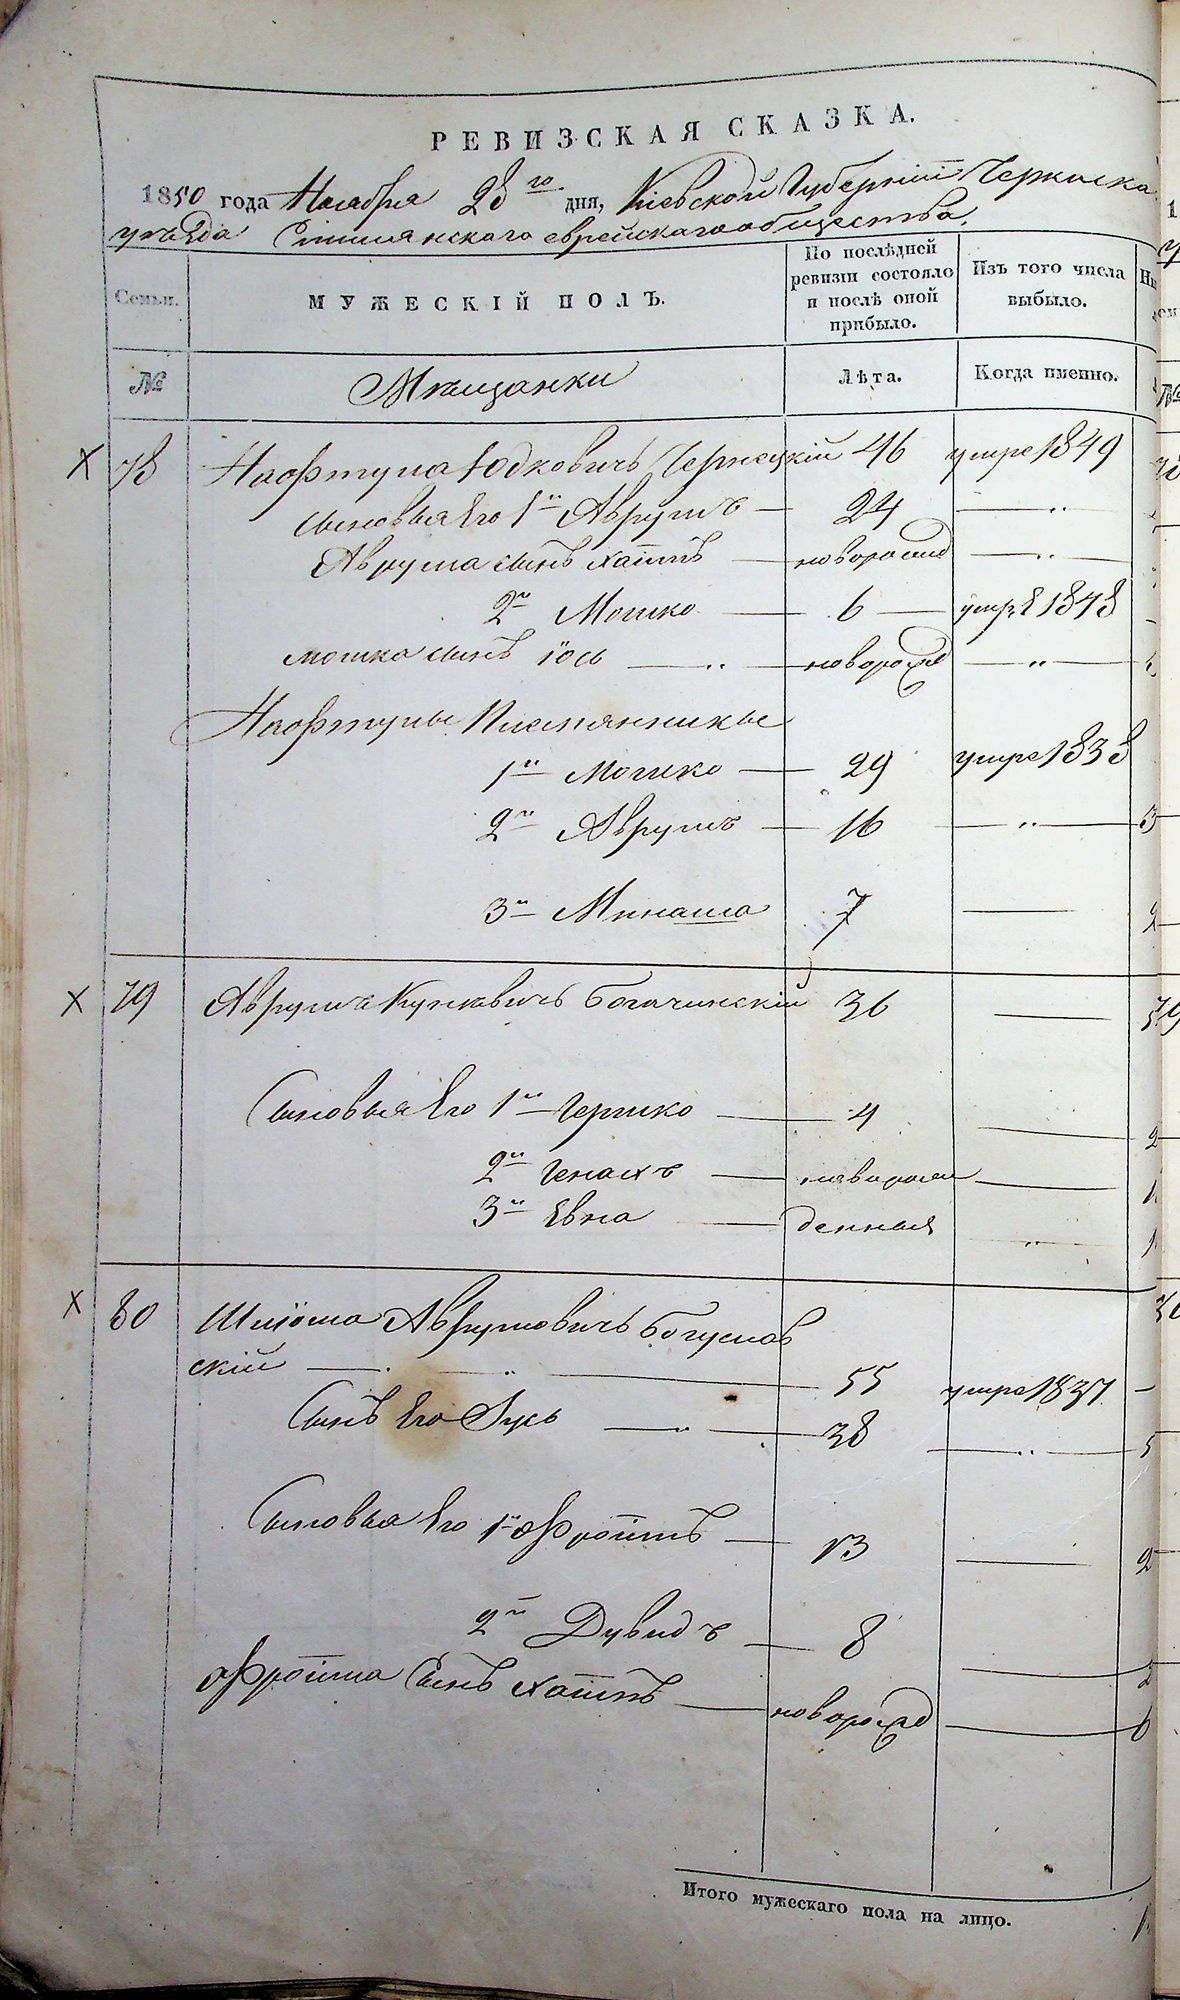 РЕВИЗСКАЯ СКАЗКА.
1850 года Ноября 28го дня, Кіевской Губерніи Черкаска
уѣзда Смилянскаго еврейскаго общества.
Семьи.
МУЖЕСКІЙ ПОЛЪ.
По послѣдней ревизіи состояло и послѣ оной прибыло.
Изъ того числа выбыло.
№
Мѣщанки
Лѣта.
Когда именно.
Х 78 Нафтула Юдковичъ Чернецкій 46 умре 1849
сыновья Его 1й Аврумъ — 24 — „ —
Аврума сынъ Хаимъ — новорожд — „ —
2й Мошко — 6 — умре 1848
Мошка сынъ Іось — „ — новорожд — „ —
Нафтулы Племянники
1й Мошко — 29 умре 1838
2й Аврумъ — 16 — „ —
3й Минаша 7 —
Х 79 Аврумъ Кунковичъ Богачинскій 36 —
Сыновья Его 1й Гершко — 4 —
2й Генахъ — новорож —
3й Евна — денныя „
Х 80 Шліома Аврумовичъ Богуслав
скій — „ — 55 умре 1837
Сынъ Его Зусь — „ — 38 — „ —
Сыновья Его 1й Фроимъ — 13 —
2й Дувидъ — 8 —
Фроима Сынъ Хаимъ — новорожд —
Итого мужескаго пола на лицо.